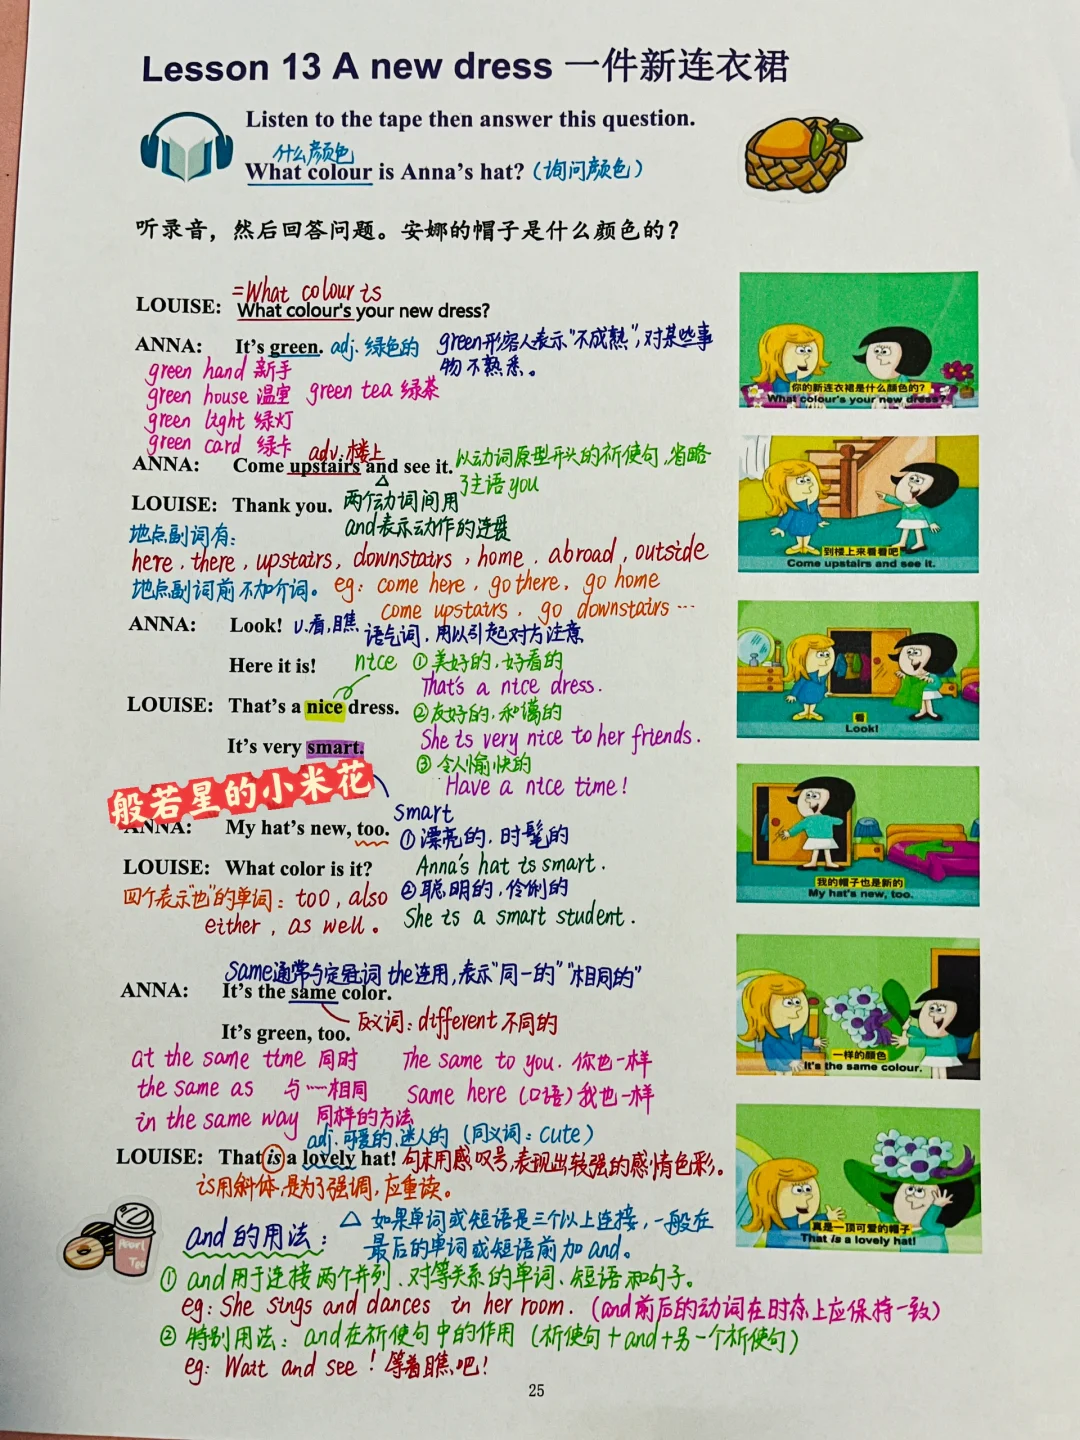 Lesson 13 A new dress 一件新连衣裙
Listen to the tape then answer this question.
什么颜色
What colour is Anna's hat? (询问颜色)
听录音，然后回答问题。安娜的帽子是什么颜色的？
=What colour is
LOUISE: What colour's your new dress?
ANNA: It's green. adj. 绿色的 green形容人表示"不成熟"，对某些事
物不熟悉。
green hand 新手
green house 温室 green tea 绿茶
green light 绿灯
green card 绿卡 adv.楼上
ANNA: Come upstairs and see it. 以动词原型开头的祈使句，省略
了主语you
LOUISE: Thank you. 两个动词间用
and表示动作的连贯
地点副词有：
here, there, upstairs, downstairs, home, abroad, outside
地点副词前不加介词。 eg: come here, go there, go home
come upstairs, go downstairs …
ANNA: Look! v.看，瞧 语气词，用以引起对方注意
Here it is! nice ①美好的，好看的
That's a nice dress.
LOUISE: That's a nice dress. ②友好的，和蔼的
She is very nice to her friends.
It's very smart.
③ 令人愉快的
Have a nice time!
般若星的小米花
smart
ANNA: My hat's new, too. ①漂亮的，时髦的
LOUISE: What color is it? Anna's hat is smart.
四个表示"也"的单词：too, also ②聪明的，伶俐的
either, as well。 She is a smart student.
same通常与定冠词the连用，表示"同一的""相同的"
ANNA: It's the same color.
反义词：different 不同的
It's green, too.
at the same time 同时 The same to you. 你也一样
the same as 与……相同 Same here (口语)我也一样
in the same way 同样的方法
adj.可爱的，迷人的 (同义词：cute)
LOUISE: That is a lovely hat! 句末用感叹号，表现出较强的感情色彩。
is用斜体，是为了强调，应重读。
and的用法： △ 如果单词或短语是三个以上连接，一般在
最后的单词或短语前加and。
① and用于连接两个并列、对等关系的单词、短语和句子。
eg: She sings and dances in her room. (and前后的动词在时态上应保持一致)
② 特别用法：and在祈使句中的作用 (祈使句+and+另一个祈使句)
eg: Wait and see! 等着瞧吧！
25
你的新连衣裙是什么颜色的?
What colour's your new dress?
到楼上来看看吧
Come upstairs and see it.
看
Look!
我的帽子也是新的
My hat's new, too.
一样的颜色
It's the same colour.
真是一顶可爱的帽子
That is a lovely hat!
Pearl
Tea